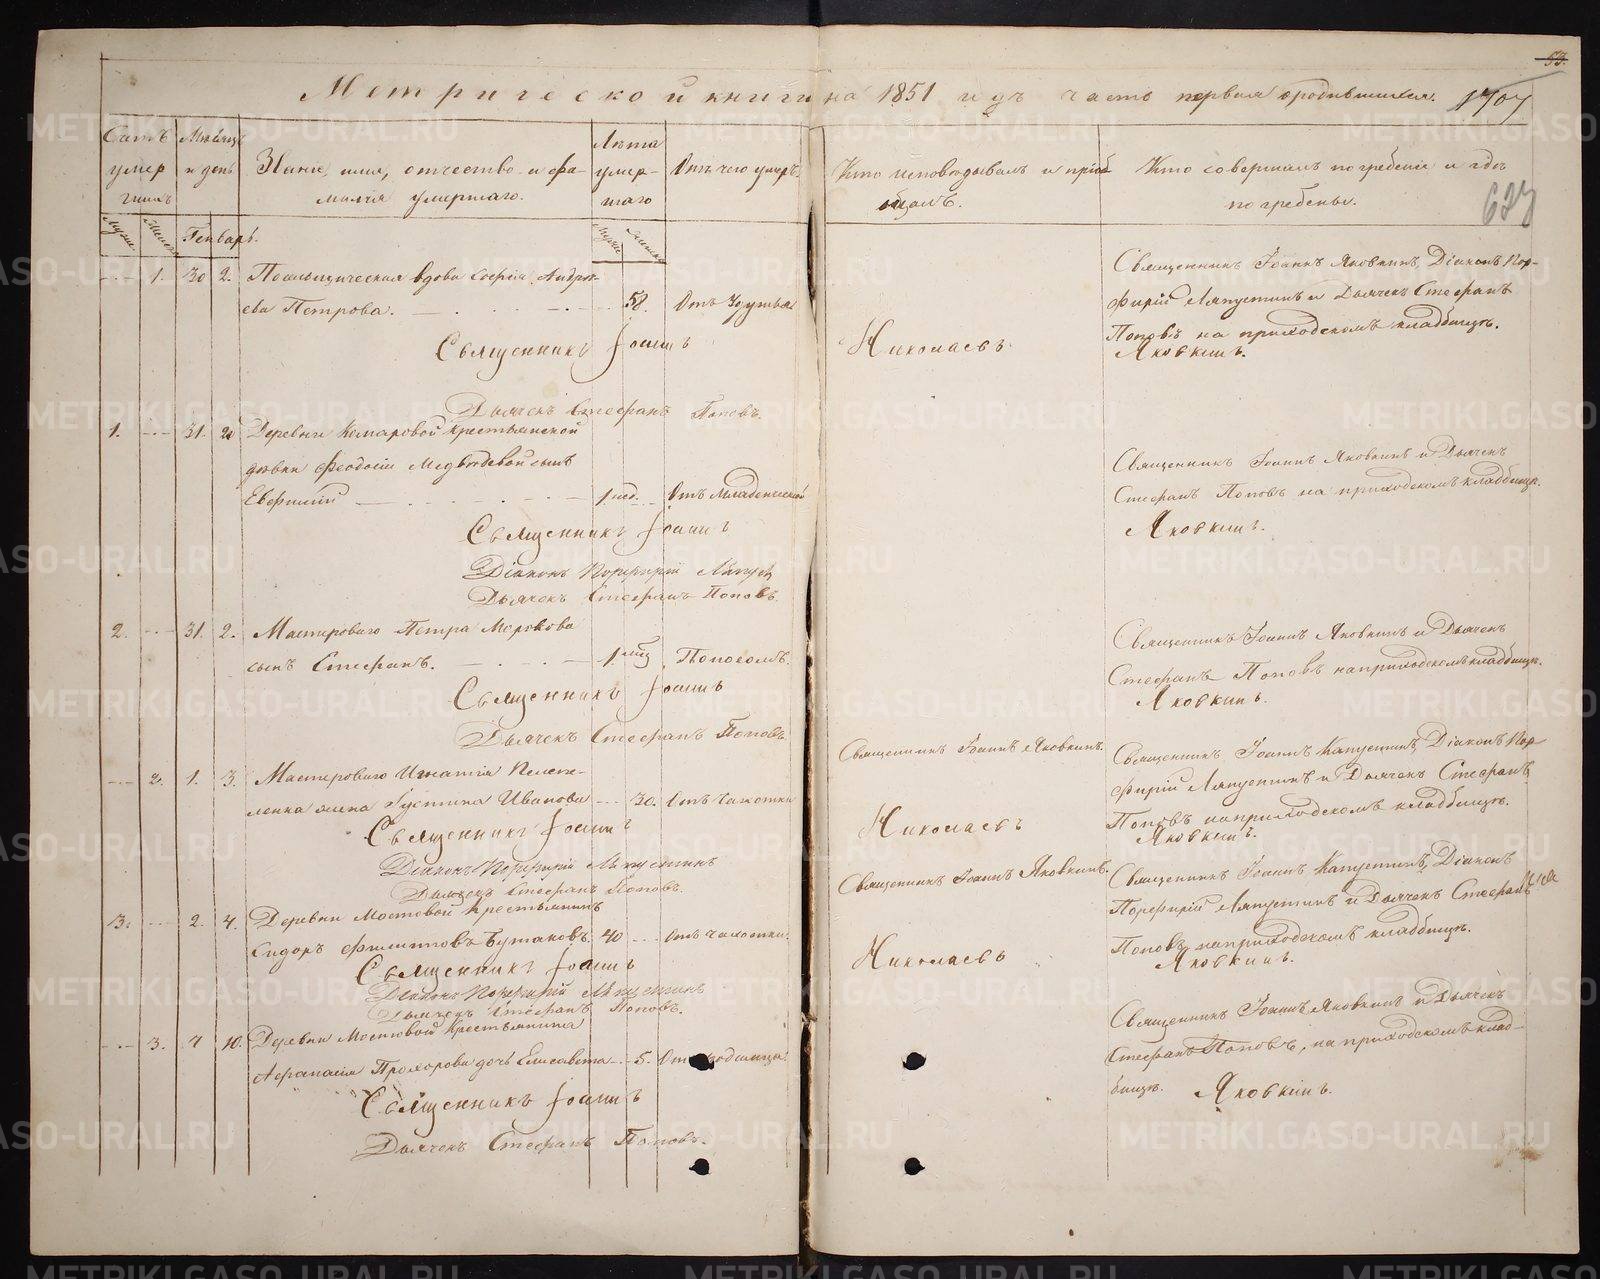 53.
Метрической книги на 1851 годъ часть первая о родившихся.
1707
627
Счетъ умер шихъ
Мѣсяцъ и день
Званіе, имя, отчество и фамилія умершаго.
Лѣта умершаго
Отъ чего умеръ.
Кто исповѣдывалъ и пріобщалъ.
Кто совершалъ погребеніе и гдѣ погребены.
Мужес.
Женск.
Генварь.
1. 30 2. вдова Софія Андре-
ева Петрова. 58. Отъ
Священникъ Іоаннъ
Дьячекъ Стефанъ Поповъ.
Николаевъ
Священникъ Іоаннъ Яковкинъ, Діаконъ Пор-
фирій Ляпустинъ и Дьячекъ Стефанъ
Поповъ на приходскомъ кладбищѣ.
Яковкинъ.
1. 31. 2 Деревни Комаровой крестьянской
дѣвки Феодосіи Медвѣдевой сынъ
Евфимій 1 нед. Отъ младенческой
Священникъ Іоаннъ
Діаконъ Порфирій Ляпус
Дьячекъ Стефанъ Поповъ.
Священникъ Іоаннъ Яковкинъ и Дьячекъ
Стефанъ Поповъ на приходскомъ кладбищѣ.
Яковкинъ.
2. 31. 2. Мастероваго Петра Морокова
сынъ Стефанъ. 1. мѣс. Поносомъ.
Священникъ Іоаннъ
Дьячекъ Стефанъ Поповъ.
Священникъ Іоаннъ Яковкинъ и Дьячекъ
Стефанъ Поповъ на приходскомъ кладбищѣ.
Яковкинъ.
2. 1. 3. Мастероваго Игнатія Пелепе-
ленка жена Густина Иванова 30. Отъ чахотки
Священникъ Іоаннъ
Діаконъ Порфирій Ляпустинъ
Дьячекъ Стефанъ Поповъ.
Священникъ Іоаннъ Яковкинъ.
Николаевъ
Священникъ Іоаннъ Капустинъ, Діаконъ Пор-
фирій Ляпустинъ и Дьячекъ Стефанъ
Поповъ на приходскомъ кладбищѣ.
Яковкинъ.
3. 2. 4. Деревни Мостовой крестьянинъ
Сидоръ Филипповъ Бутаковъ. 40 Отъ чахотки.
Священникъ Іоаннъ
Діаконъ Порфирій Ляпустинъ
Дьячекъ Стефанъ Поповъ.
Священникъ Іоаннъ Яковкинъ.
Николаевъ
Священникъ Іоаннъ Капустинъ, Діаконъ
Порфирій Ляпустинъ и Дьячекъ Стефанъ
Поповъ на приходскомъ кладбищѣ.
Яковкинъ.
3. 7 10. Деревни Мостовой крестьянина
Афанасія Прохорова дочь Елисавета 5. Отъ
Священникъ Іоаннъ
Дьячекъ Стефанъ Поповъ.
Священникъ Іоаннъ Яковкинъ и Дьячекъ
Стефанъ Поповъ, на приходскомъ клад-
бищѣ.
Яковкинъ.
METRIKI.GASO-URAL.RU